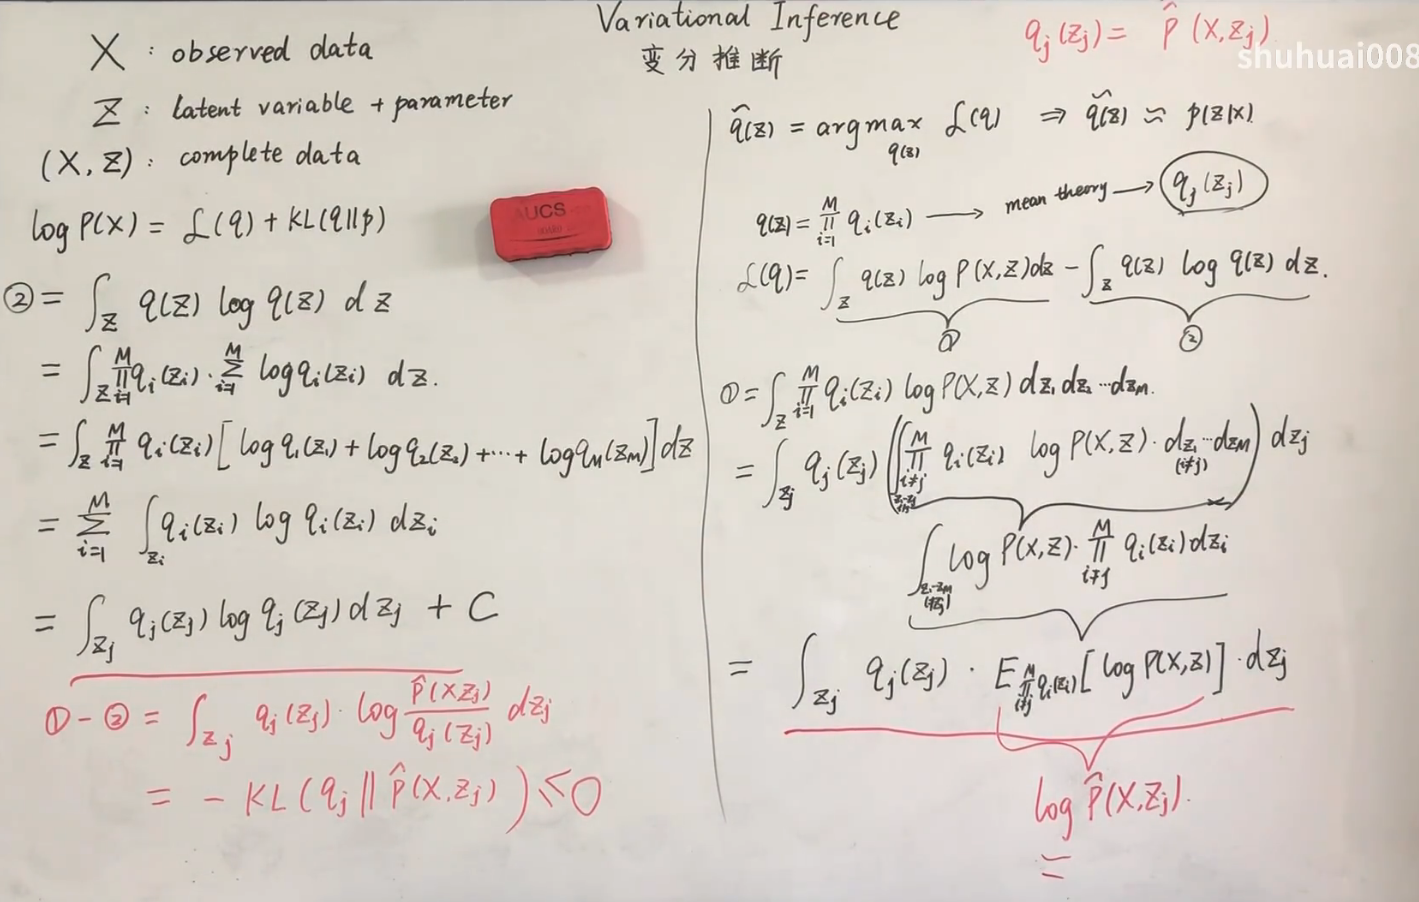 Variational Inference
变分推断
q_j(z_j) = p̂(X,z_j)
shuhuai008
X : observed data
Z : latent variable + parameter
(X, Z) : complete data
log P(X) = ℒ(q) + KL(q||p)
AUCS
② = ∫_Z q(Z) log q(Z) dZ
= ∫_Z ∏_{i=1}^M q_i(z_i) · ∑_{i=1}^M log q_i(z_i) dZ.
= ∫_Z ∏_{i=1}^M q_i(z_i) [log q_1(z_1) + log q_2(z_2) + ··· + log q_M(z_M)] dZ
= ∑_{i=1}^M ∫_{z_i} q_i(z_i) log q_i(z_i) dz_i
= ∫_{z_j} q_j(z_j) log q_j(z_j) dz_j + C
① - ② = ∫_{z_j} q_j(z_j) · log \frac{p̂(X,z_j)}{q_j(z_j)} dz_j
= - KL(q_j || p̂(X,z_j)) ≤ 0
q̂(z) = argmax_{q(z)} ℒ(q) ⇒ q̂(z) ≈ p(z|x)
q(z) = ∏_{i=1}^M q_i(z_i) → mean theory → q_j(z_j)
ℒ(q) = ∫_Z q(z) log P(X,Z) dz - ∫_Z q(z) log q(z) dz.
① ②
① = ∫_Z ∏_{i=1}^M q_i(z_i) log P(X,Z) dz_1 dz_2 ··· dz_M.
= ∫_{z_j} q_j(z_j) (∫_{z_1-z_M (i≠j)} ∏_{i≠j}^M q_i(z_i) log P(X,Z) · dz_1 ··· dz_M (i≠j)) dz_j
∫_{z_1-z_M (≠j)} log P(X,Z) · ∏_{i≠j}^M q_i(z_i) dz_i
= ∫_{z_j} q_j(z_j) · E_{∏_{i≠j}^M q_i(z_i)} [log P(X,Z)] · dz_j
log p̂(X,z_j).
=